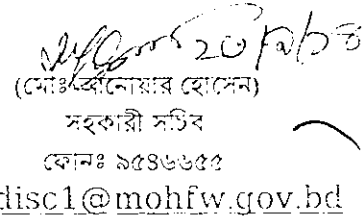 (মোঃ আনোয়ার হোসেন)
সহকারী সচিব
ফোনঃ ৯৫৪৬৬৫৫
disc1@mohfw.gov.bd